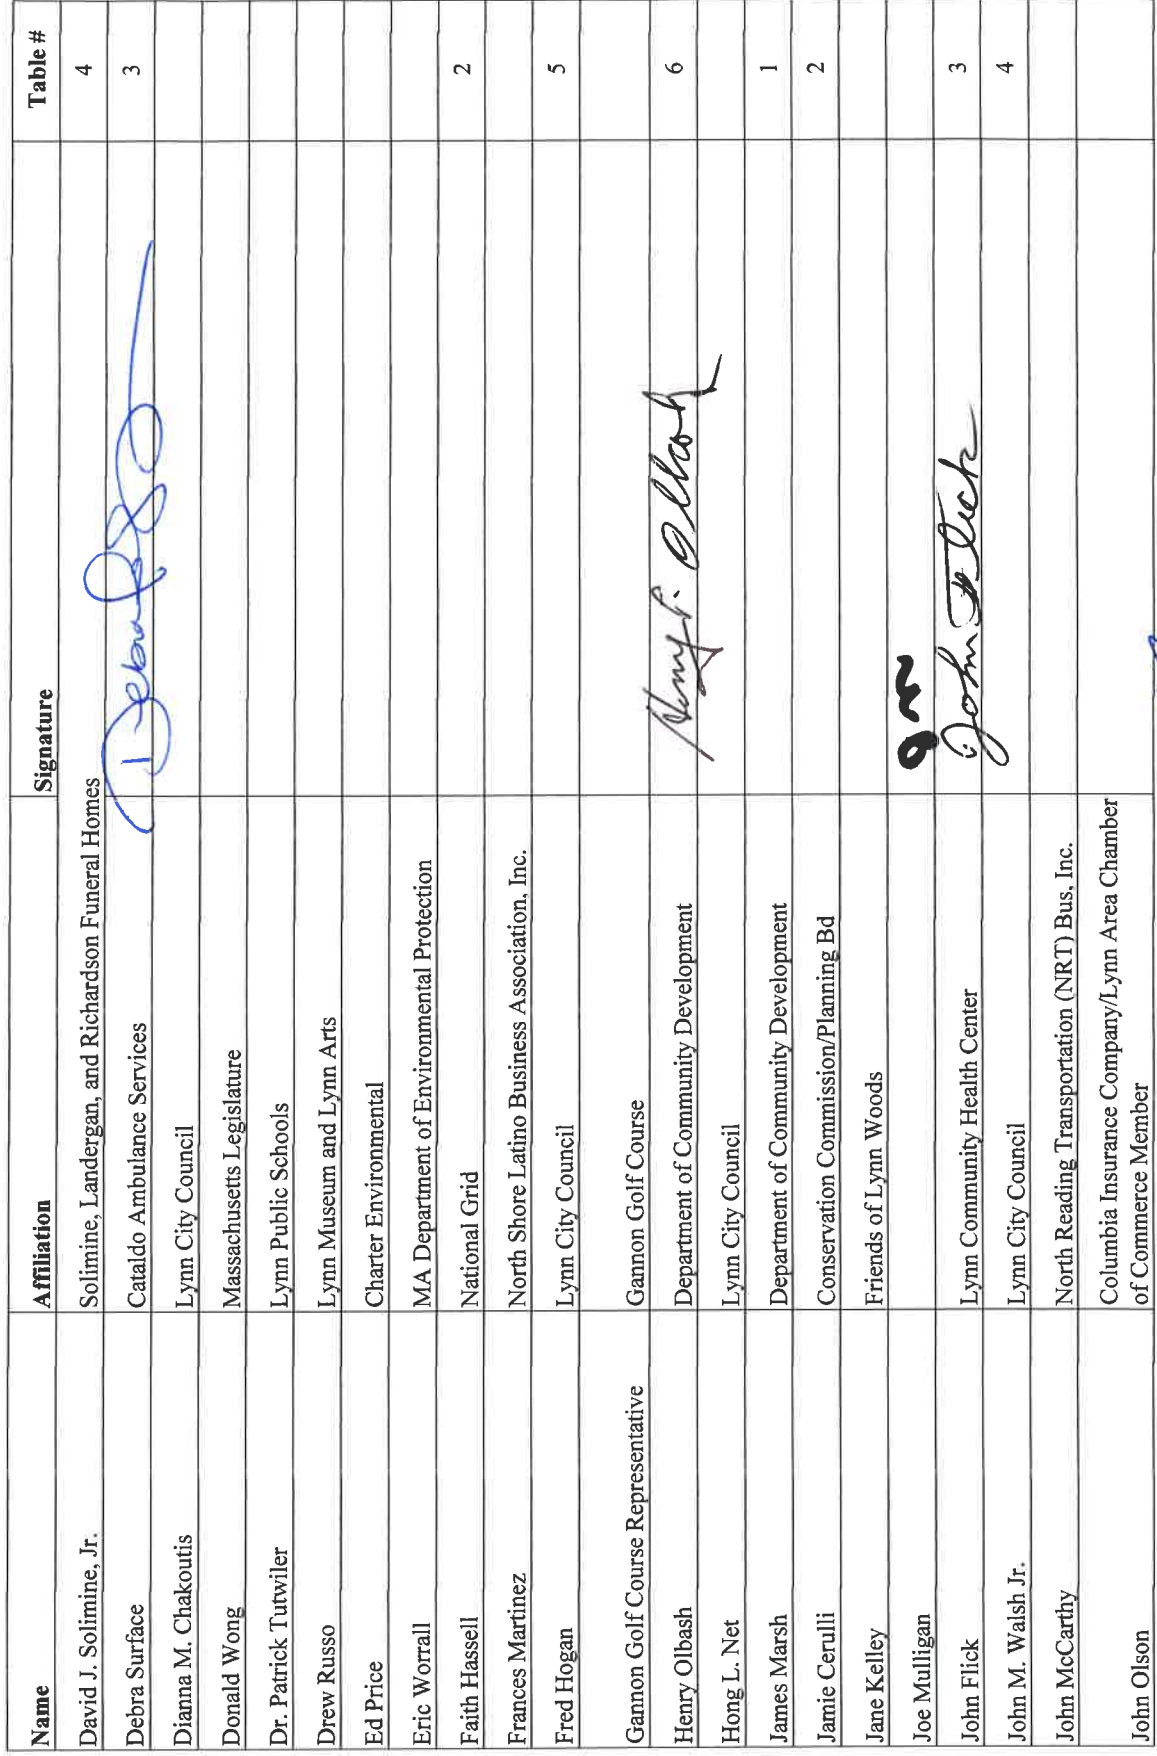 Name Affiliation Signature Table #
David J. Solimine, Jr. Solimine, Landergan, and Richardson Funeral Homes 4
Debra Surface Cataldo Ambulance Services Debra 3
Dianna M. Chakoutis Lynn City Council
Donald Wong Massachusetts Legislature
Dr. Patrick Tutwiler Lynn Public Schools
Drew Russo Lynn Museum and Lynn Arts
Ed Price Charter Environmental
Eric Worrall MA Department of Environmental Protection
Faith Hassell National Grid 2
Frances Martinez North Shore Latino Business Association, Inc.
Fred Hogan Lynn City Council 5
Gannon Golf Course Representative Gannon Golf Course
Henry Olbash Department of Community Development Henry Olbash 6
Hong L. Net Lynn City Council
James Marsh Department of Community Development 1
Jamie Cerulli Conservation Commission/Planning Bd 2
Jane Kelley Friends of Lynn Woods
Joe Mulligan Jm
John Flick Lynn Community Health Center John Flick 3
John M. Walsh Jr. Lynn City Council 4
John McCarthy North Reading Transportation (NRT) Bus, Inc.
John Olson Columbia Insurance Company/Lynn Area Chamber
of Commerce Member